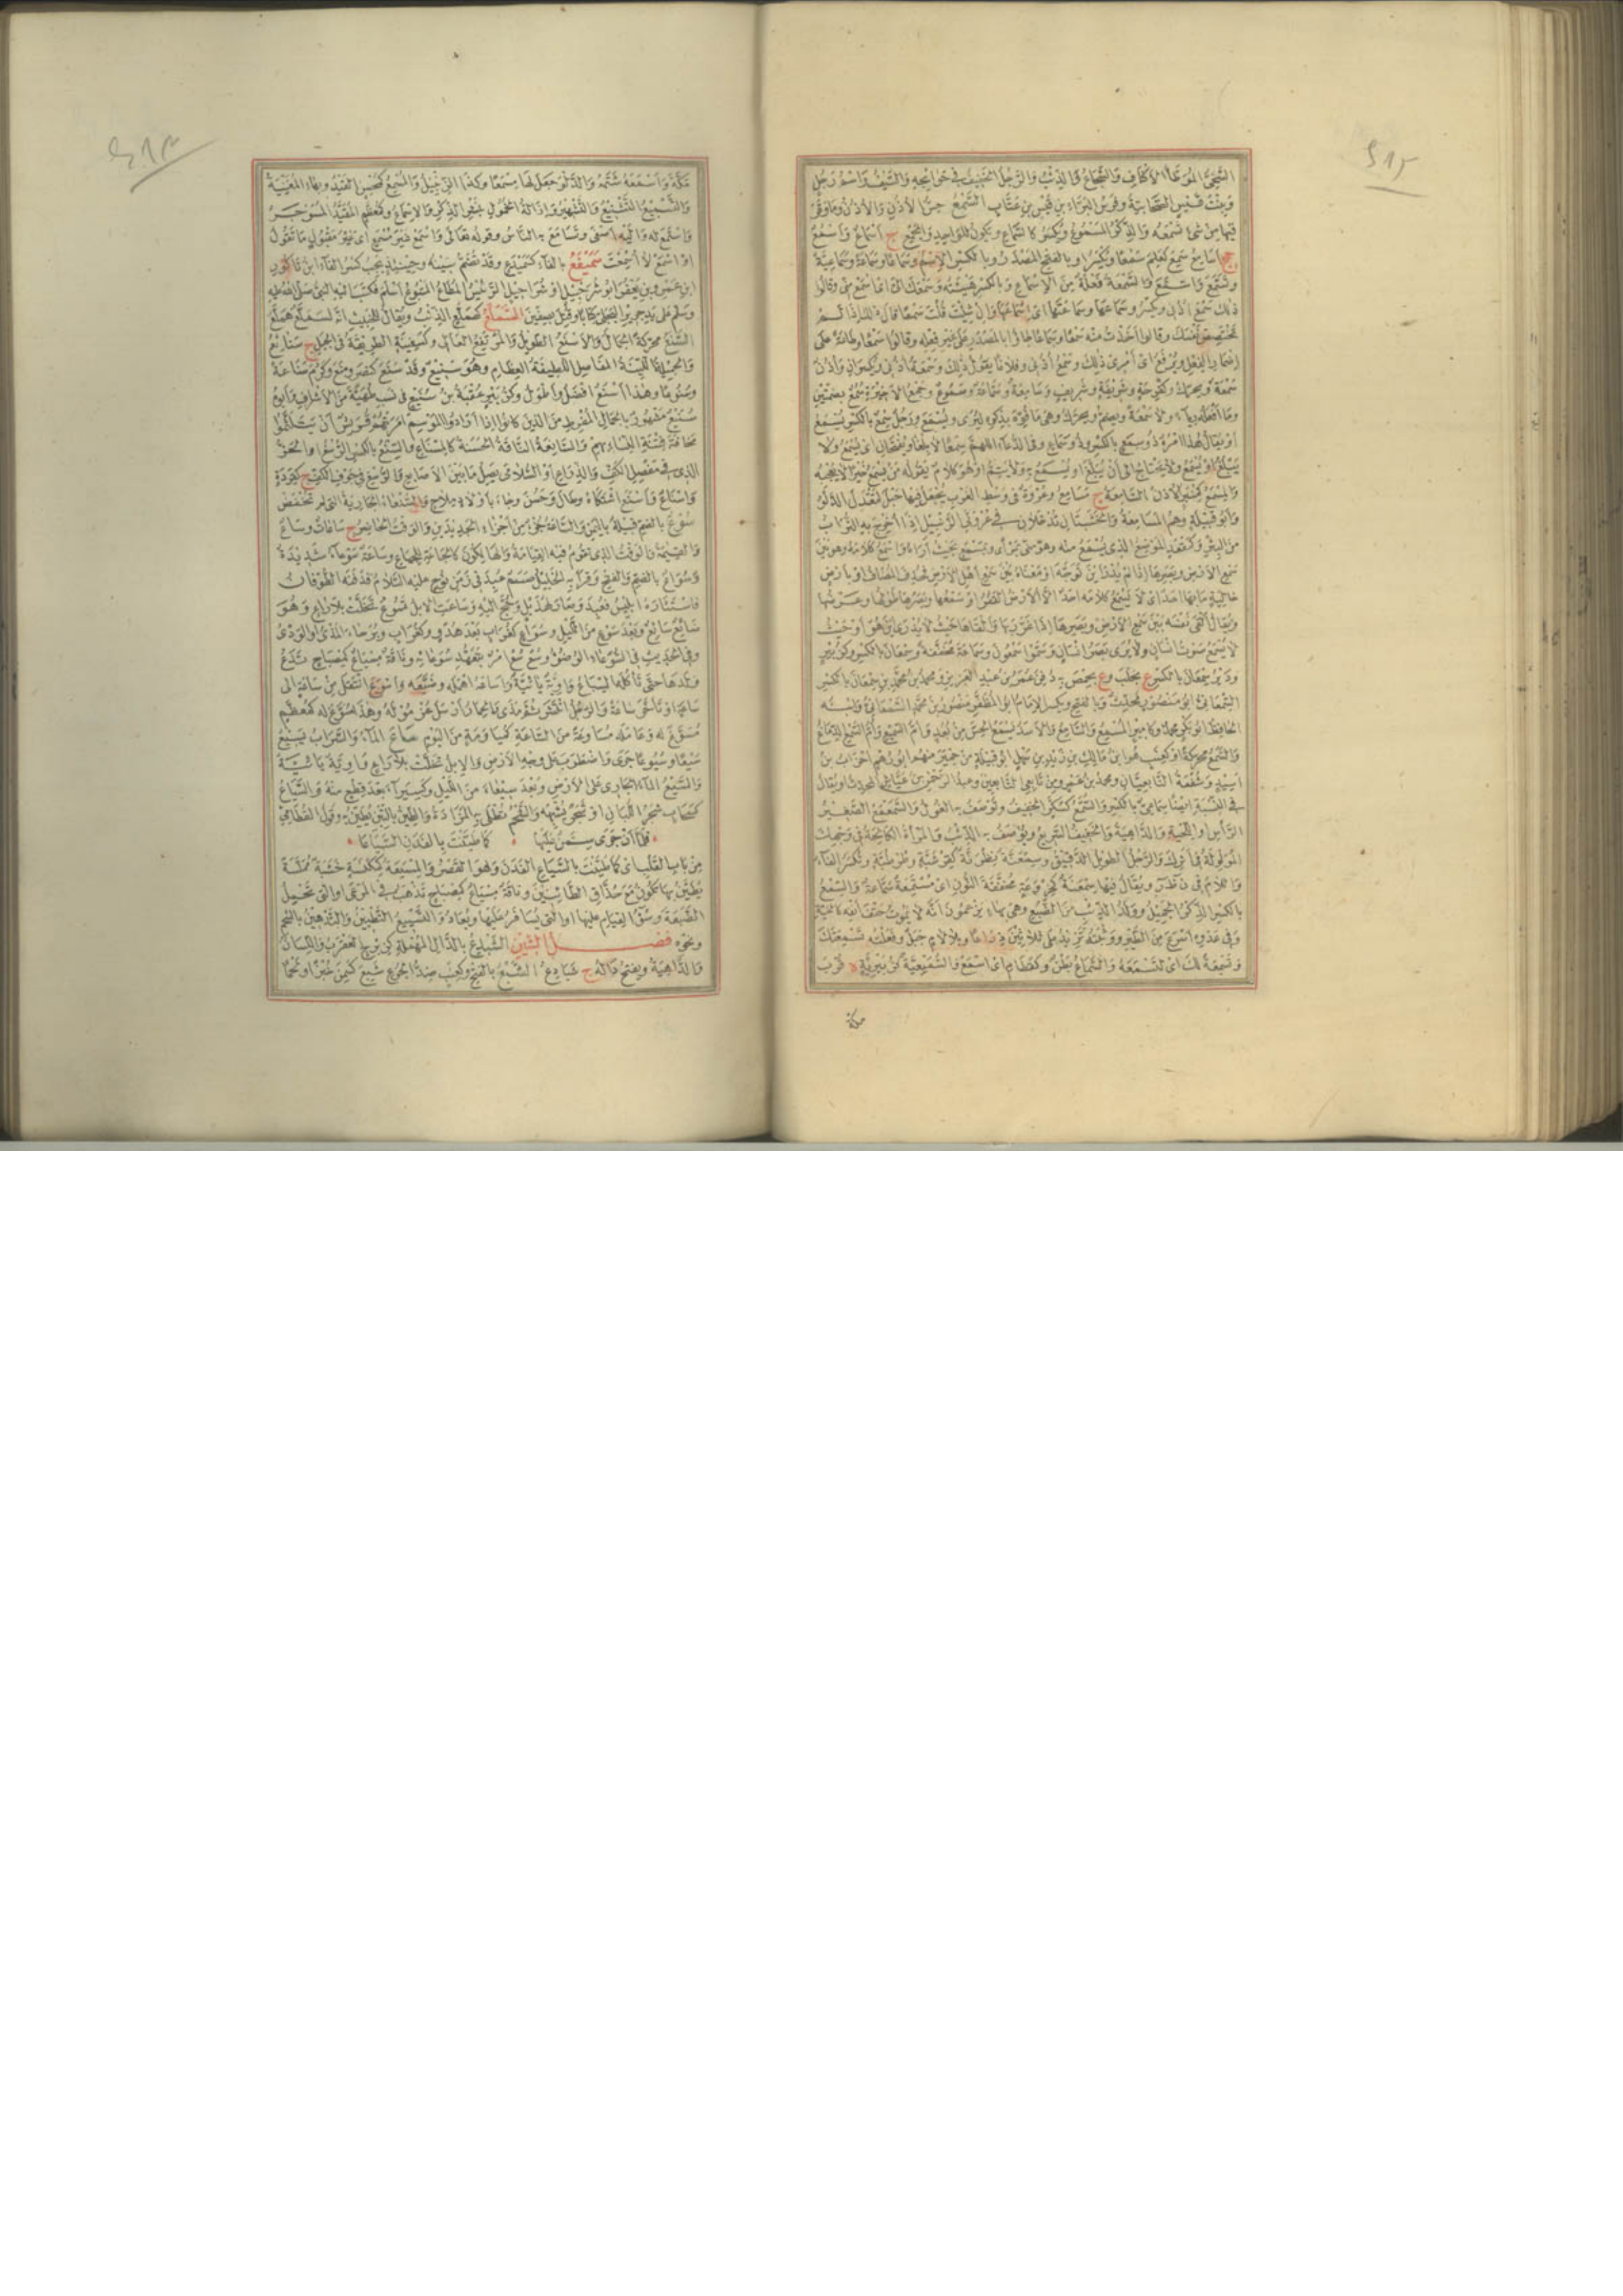 السخي الموطأ الأكناف والشجاع والذئب والرجل الخفيف في حوائجه والسيف واسم رجل
وبنت قيس الصحابية وفرس البراء بن قيس بن عتاب السمع حس الأذن والأذن وما وقر
فيها من شئ تسمعه والذكر المسموع ويكسر كالسماع ويكون للواحد والجميع ج أسماع وأسمع
جج أسامع سمع كعلم سمعا ويكسر أو بالفتح المصدر وبالكسر الاسم وسماعا وسماعة وسماعية
وتسمع واسمع والسمعة فعلة من الإسماع وبالكسر هيئته وسمعك إلي أي اسمع مني وقالوا
ذلك سمع أذني ويكسر وسماعها وسماعتها أي إسماعها وإن شئت قلت سمعا قال ذلك إذا لم
تختصص نفسك وقالوا أخذت منه سمعا وسماعا جاؤا بالمصدر على غير فعله وقالوا سمعا وطاعة على
إضمار الفعل ويرفع أي أمري ذلك وسمع أذني فلانا يقول ذلك وسمعة أذني ويكسران وأذن
سمعة ويحرك وكفرحة وشريفة وشريف وسامعة وسماعة وسموع وجمع الأخيرة سمع بضمتين
وما فعله رياء ولا سمعة ويضم ويحرك وهي ما نوه بذكره ليرى ويسمع ورجل سمع بالكسر يسمع
أو يقال هذا امرؤ ذو سمع بالكسر وذو سماع وفي الدعاء اللهم سمعا لا بلغا ويفتحان أي يسمع ولا
يبلغ أو يسمع ولا يحتاج إلى أن يبلغ أو يسمع به ولا يتم أو هو كلام يقوله من يسمع خبرا لا يعجبه
والمسمع كمنبر الأذن كالسامعة ج مسامع وعروة في وسط الغرب يجعل فيها حبل لتعدل الدلو
وأبو قبيلة وهم المسامعة والخشبتان تدخلان في عروتي الزنبيل إذا أخرج به التراب
من البئر وكمقعد الموضع الذي يسمع منه وهو مني بمرأى ومسمع بحيث أراه وأسمع كلامه وهو بين
سمع الأرض وبصرها إذا لم يدر أين توجه أو معناه بين سمع أهل الأرض فحذف المضاف أو بأرض
خالية ما بها أحد أي لا يسمع كلامه أحد إلا الأرض القفر أو سمعها وبصرها طولها وعرضها
ويقال ألقى نفسه بين سمع الأرض وبصرها إذا غرر بها وألقاها حيث لا يدرى أين هو أو حيث
لا يسمع صوت إنسان ولا يرى بصر إنسان وسموا سمعون وسماعة مخففة وسمعان بالكسر وكزبير
ودير سمعان بالكسر ع بحلب وع بحمص به دفن عمر بن عبد العزيز ومحمد بن محمد بن سمعان بالكسر
السمعاني أبو منصور محدث وبالفتح ويكسر الإمام أبو المظفر منصور بن محمد السمعاني وابنه
الحافظ أبو بكر محمد وكأمير المسمع والسامع والأسد يسمع الحس من بعد وأم السميع وأم السمع الدماغ
والسمع محركة أو كعنب هو ابن مالك بن زيد بن سهل أبو قبيلة من حمير منهم أبو رهم أحزاب بن
أسيد وشفعة التابعيان ومحمد بن عمرو من تابعي التابعين وعبد الرحمن بن عياش المحدث أو يقال
في النسبة أيضا سماعي بالكسر والسمع كسكر الخفيف ويوصف به الغول والسمعمع الصغير
الرأس أو اللحية والداهية والخفيف السريع ويوصف به الذئب والمرأة الكالحة في وجهك
المولولة في أثرك والرجل الطويل الدقيق وسمعنة نظرنة كقرعنة وطرطبة وتكسر الفاء
واللام في ن ظ ر ويقال فيها سمعنة كخروعة مخففة النون أي مستمعة سماعة والسمع
بالكسر الذكر الجميل وولد الذئب من الضبع وهي بهاء يزعمون أنه لا يموت حتف أنفه كالحية
وفي عدوه أسرع من الطير ووثبته تزيد على ثلاثين ذراعا وبلا لام جبل وفعلته تسمعتك
وتسمعة لك أي لتسمعه والسماع بطن وكقطام أي اسمع والسميعية كزبيرية ة قرب
مكة
مكة وأسمعه شتمه والدلو جعل لها مسمعا وكذا الزنبيل والمسمع كمحسن القيد وبهاء المغنية
والتسميع التشنيع والتشهير وإزالة الخمول بنشر الذكر والإسماع وكمعظم المقيد المسوجر
واستمع له وإليه أصغى وتسامع به الناس وقوله تعالى واسمع غير مسمع أي غير مقبول ما تقول
أو اسمع لا أسمعت سميفع بالفاء كسميدع وقد تضم سينه وحينئذ يجب كسر الفاء ابن ناكور
ابن عمرو بن يعفر أبو شرحبيل أو شراحيل الرئيس المطاع المتبوع أسلم فكتب إليه النبي صلى الله عليه
وسلم على يد جرير البجلي كتابا وقتل بصفين السملع كهملع الذئب ويقال للخبيث إنه لسملع هملع
السنع محركة الجمال والأسنع الطويل والمرتفع العالي وكسفينة الطريقة في الجبل ج سنائع
والجميلة اللينة المفاصل اللطيفة العظام وهو سنيع وقد سنع كنصر ومنع وكرم سناعة
وسنوعا وهذا أسنع أفضل وأطول وكزبير عقبة بن سنيع في نسب طهية من الأشراف وأبوه
سنيع مشهور بالجمال المفرط من الذين كانوا إذا أرادوا الموسم أمرتهم قريش أن يتلثموا
مخافة فتنة النساء بهم والسانعة الناقة الحسنة كالمسناع والسنع بالكسر الرسغ أو الحز
الذي في مفصل الكف والذراع أو السلامى يصل ما بين الأصابع والرسغ في جوف الكف ج كقردة
وأسناع وأسنع اشتكاه وطال وحسن وجاء بأولاد ملاح والسنعاء الجارية التي لم تخفض
سوع بالضم قبيلة باليمن والساعة جزء من أجزاء الجديدين والوقت الحاضر ج ساعات وساع
والقيامة أو الوقت الذي تقوم فيه القيامة والهالكون كالجاعة للجياع وساعة سوعاء شديدة
وسواع بالضم والفتح وقرأ به الخليل صنم عبد في زمن نوح عليه السلام فدفنه الطوفان
فاستثاره إبليس فعبد وصار لهذيل وحج إليه وساعت الإبل تسوع تخلت بلا راع وهو
ضائع سائع وبعد سوع من الليل وسواع كغراب بعد هدء وكغراب وبرحاء المذي أو الودي
وفي الحديث في السوعاء الوضوء وسع سع أمر بتعهد سوعائه وناقة مسياع كمصباح تدع
ولدها حتى تأكله السباع واوية يائية وأساعه أهمله وضيعه وأسوع انتقل من ساعة إلى
ساعة أو تأخر ساعة والرجل انتشر ثم مذى والحمار أرسل غرموله وهذا مسوع له كمعظم
مسوغ له وعامله مساوعة من الساعة كمياومة من اليوم ساع الماء والشراب يسيع
سيعا وسيوعا جرى واضطرب على وجه الأرض والإبل تخلت بلا راع واوية يائية
والسيع الماء الجاري على الأرض وبعد سيعاء من الليل وكسيراء بعد قطع منه والسياع
كسحاب شجر اللبان أو شجر يشبهه والشحم تطلى به المزادة والطين بالتبن يطين به وقول القطامي
فلما أن جرى سمن عليها كما طينت بالفدن السياعا
من باب القلب أي كما طينت بالسياع الفدن وهو القصر والمسيعة كمكنسة خشبة مملسة
يطين بها تكون مع حذاق الطيانين وناقة مسياع كمصباح تذهب في المرعى أو التي تحمل
الضيعة وسوء القيام عليها أو التي يسافر عليها ويعاد والتسييع التطيين والتدهين بالشحم
ونحوه فصل الشين الشبدع بالدال المهملة كزبرج العقرب واللسان
والداهية ويفتح داله ج شبادع الشبع بالفتح وكعنب ضد الجوع شبع كسمن خبزا ولحما